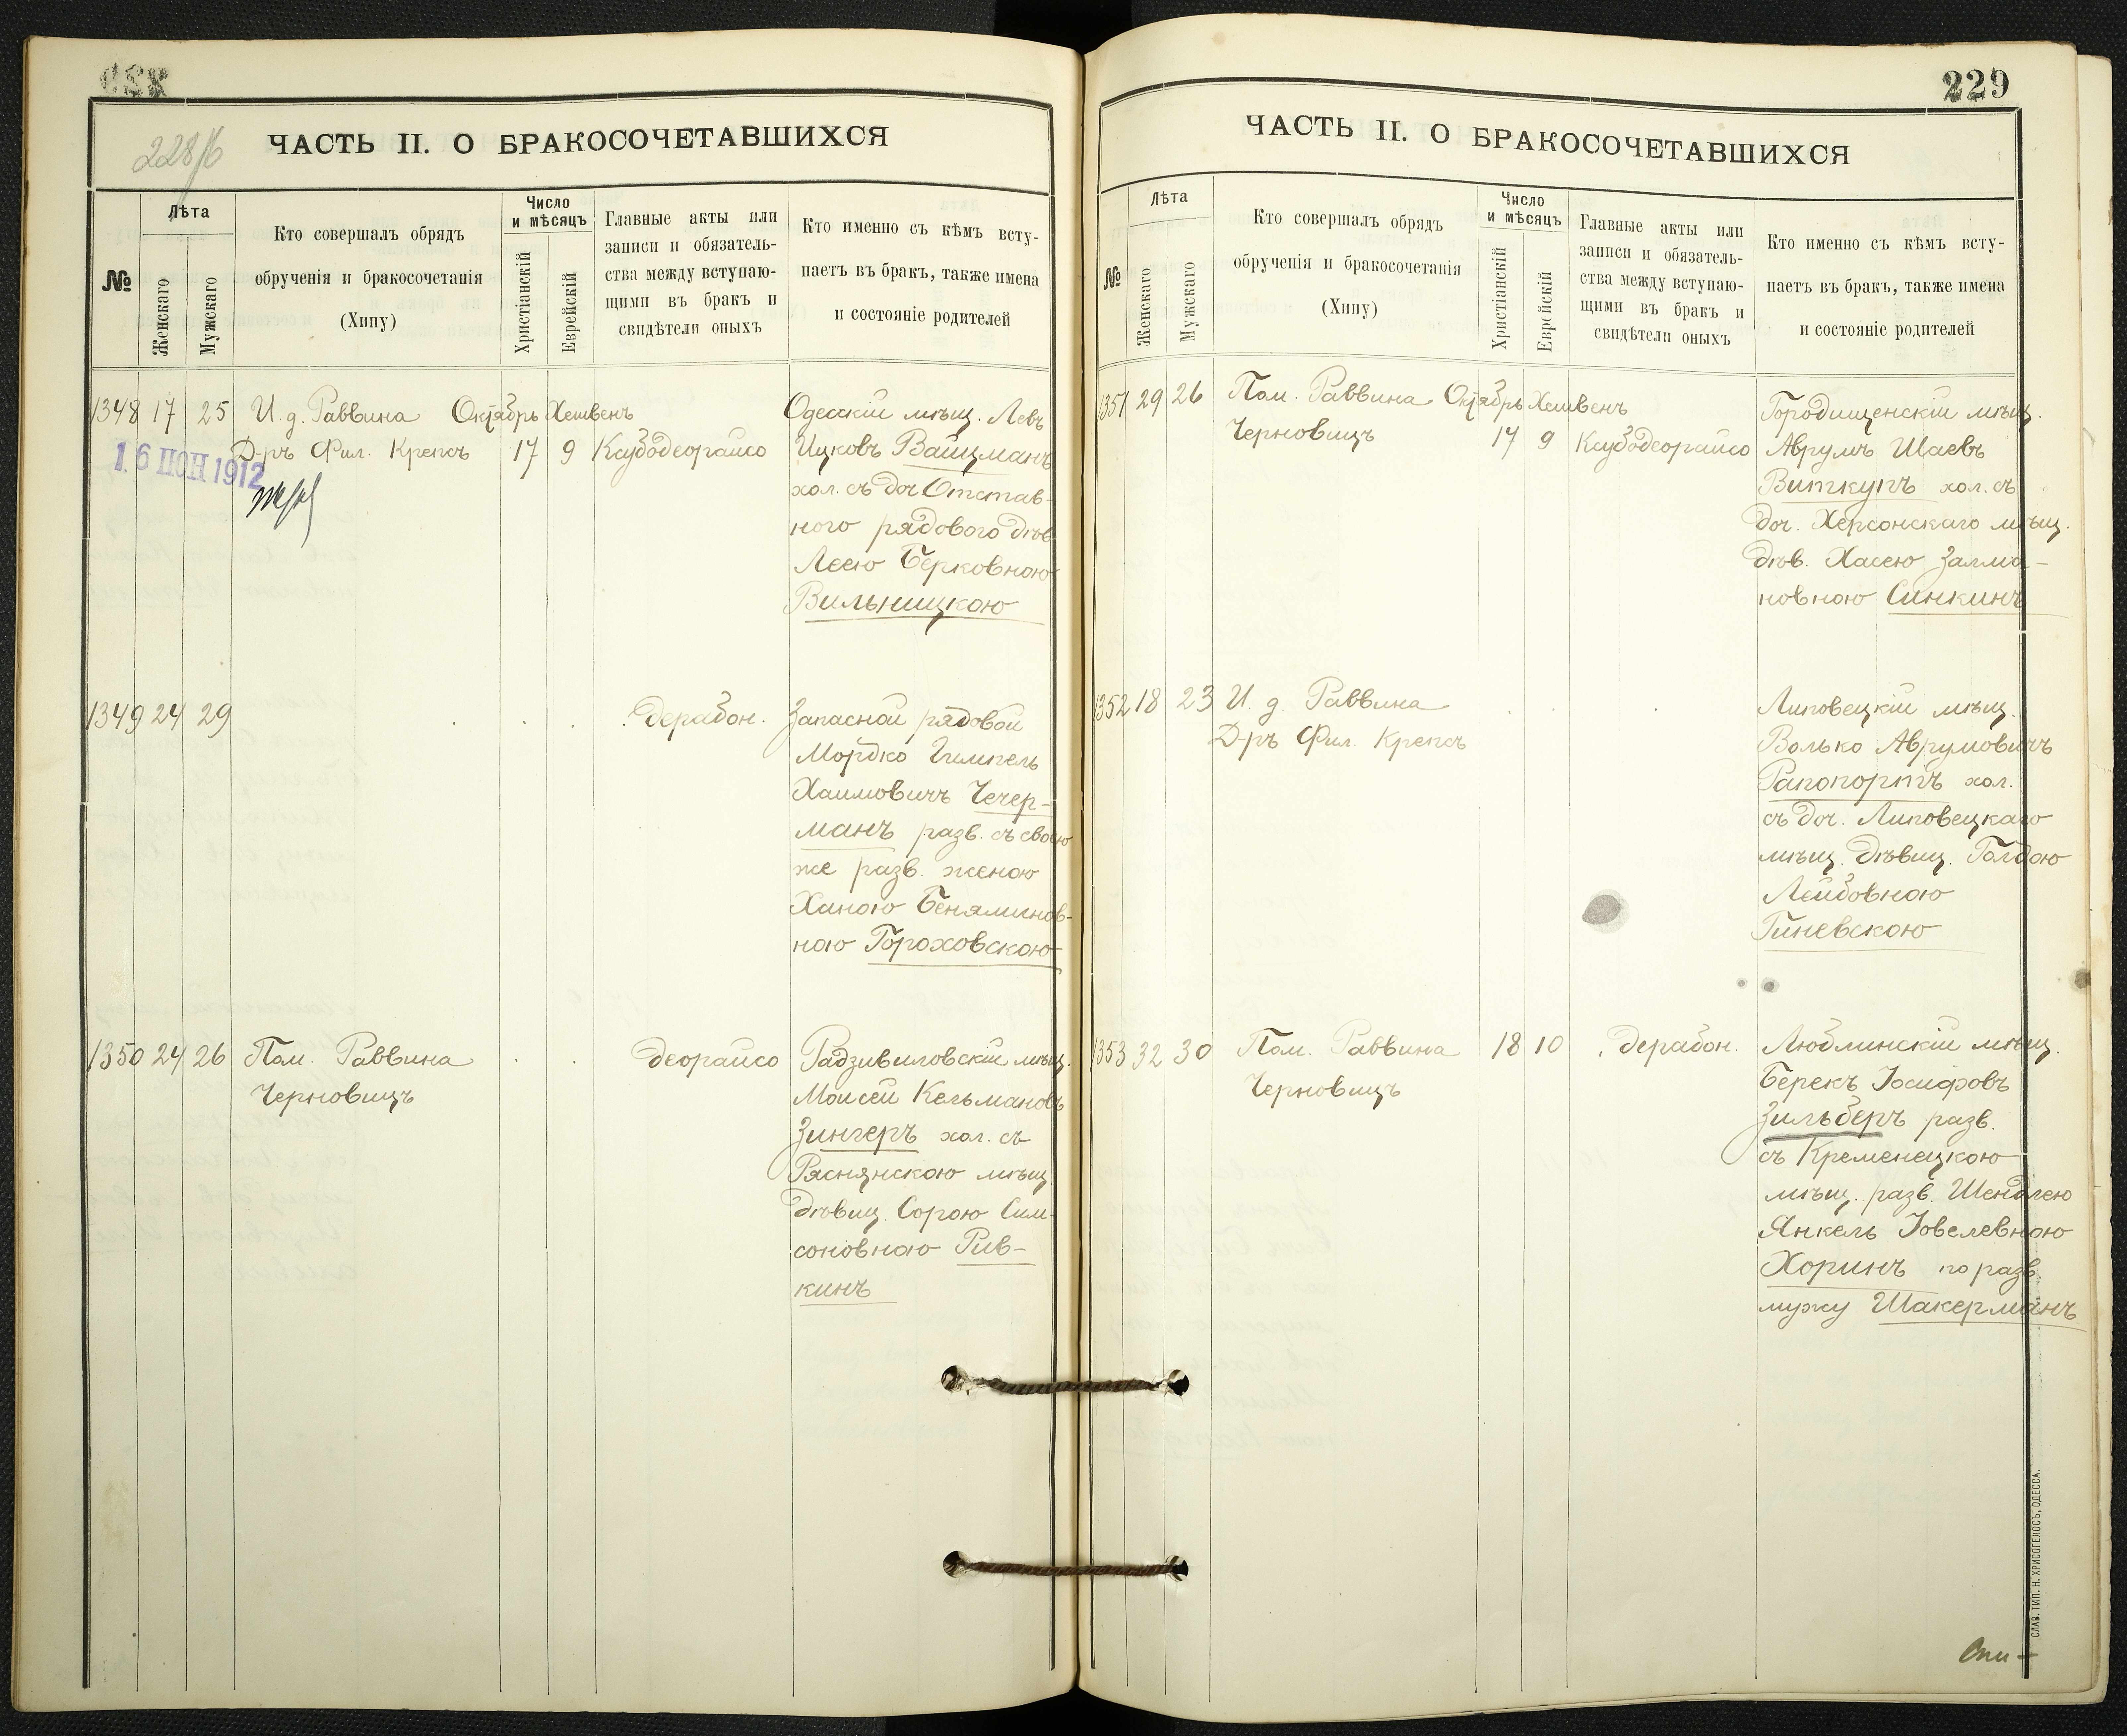 228/б
ЧАСТЬ II. О БРАКОСОЧЕТАВШИХСЯ
№
Лѣта
Женскаго
Мужскаго
Кто совершалъ обрядъ
обрученія и бракосочетанія
(Хипу)
Число
и мѣсяцъ
Христіанскій
Еврейскій
Главные акты или
записи и обязатель-
ства между вступаю-
щими въ бракъ и
свидѣтели оныхъ
Кто именно съ кѣмъ всту-
паетъ въ бракъ, также имена
и состояніе родителей
1348 17 25 И. д. Раввина Октябрь Хешвенъ
Д-ръ Фил. Крепсъ 17 9 Ксубодеорайсо
1. 6 ІЮН 1912
Одесскій мѣщ. Левъ
Ицковъ Вайцманъ
хол. съ доч Отстав-
ного рядового дѣв
Леею Берковною
Вильницкою
1349 24 29 . . . . дерабон.
Запасной рядовой
Мордко Гимпель
Хаимовичъ Чечер-
манъ разв. съ своею
же разв. женою
Ханою Бенялинов-
ною Гороховскою
1350 24 26 Пом. Раввина . . деорайсо
Черновицъ
Радзивиловскій мѣщ.
Моисей Кельмановъ
Зингеръ хол. съ
Ряснянскою мѣщ
дѣвиц. Сорою Сим-
соновною Рив-
кинъ
229
ЧАСТЬ II. О БРАКОСОЧЕТАВШИХСЯ
№
Лѣта
Женскаго
Мужскаго
Кто совершалъ обрядъ
обрученія и бракосочетанія
(Хипу)
Число
и мѣсяцъ
Христіанскій
Еврейскій
Главные акты или
записи и обязатель-
ства между вступаю-
щими въ бракъ и
свидѣтели оныхъ
Кто именно съ кѣмъ всту-
паетъ въ бракъ, также имена
и состояніе родителей
1351 29 26 Пом. Раввина Октябрь Хешвенъ
Черновицъ 17 9 Ксубодеорайсо
Городищенскій мѣщ.
Аврумъ Шаевъ
Виткупъ хол. съ
доч. Херсонскаго мѣщ.
дѣв. Хасею Залма-
новною Синкинъ
1352 18 23 И. д. Раввина . . .
Д-ръ Фил. Крепсъ
Липовецкій мѣщ.
Волько Аврумовичъ
Рапопортъ хол.
съ доч. Липовецкаго
мѣщ. дѣвиц. Голдою
Лейбовною
Гиневскою
1353 32 30 Пом. Раввина 18 10 . дерабон.
Черновицъ
Люблинскій мѣщ.
Берекъ Іосифовъ
Зильберъ разв.
съ Кременецкою
мѣщ. разв. Шендлею
Янкель Іовелевною
Хоринъ по разв.
мужу Шакерманъ
СЛАВ. ТИП. Н. ХРИСОГЕЛОСЪ, ОДЕССА.